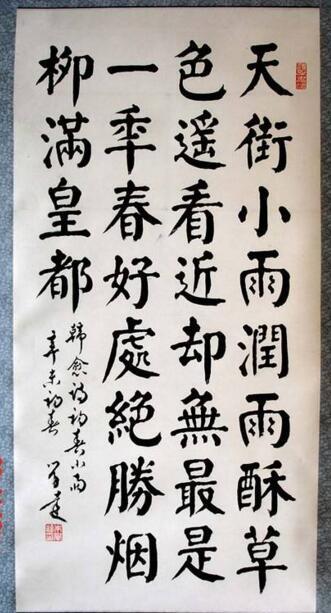 天街小雨潤雨酥草
色遥看近却無最是
一秊春好處絕勝烟
柳滿皇都
韓愈詩初春小雨
辛未初春